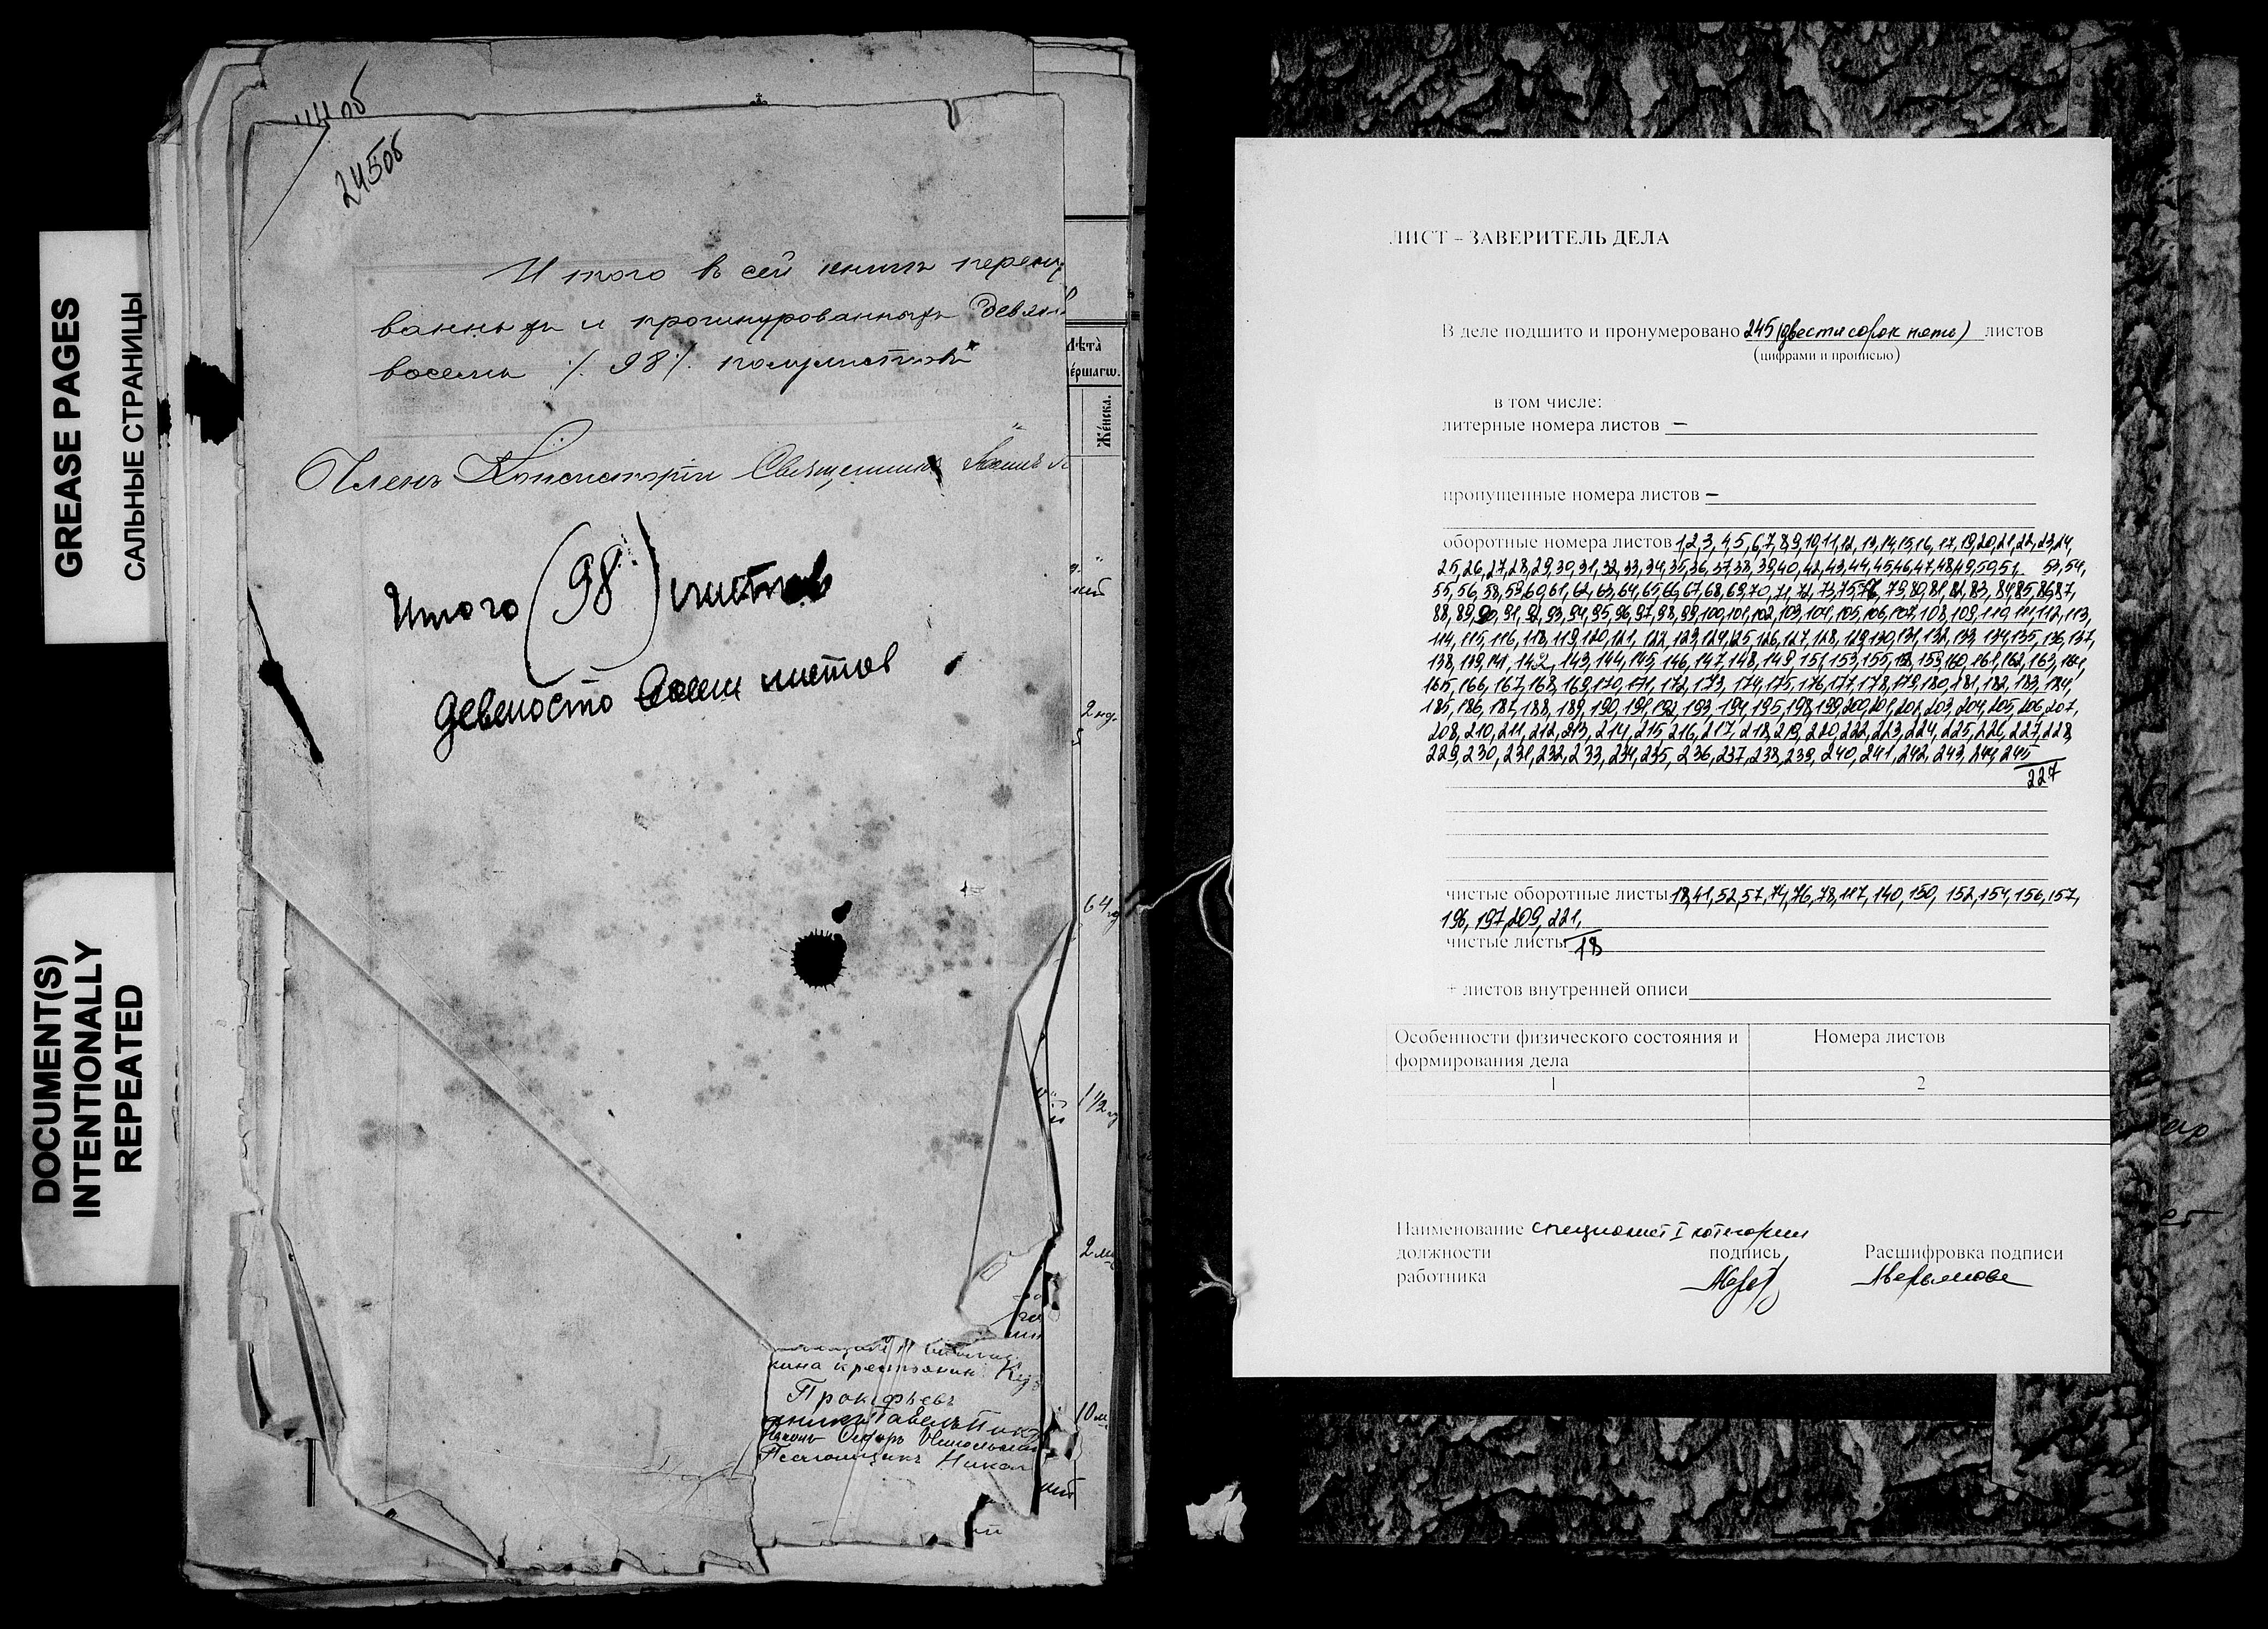 GREASE PAGES
САЛЬНЫЕ СТРАНИЦЫ
DOCUMENT(S)
INTENTIONALLY
REPEATED
245об
Итого в сей книге перену
ванныхъ и прошнурованныхъ девян
восемь /. 98 /. полулистовъ
Членъ Консисторіи Священникъ
Итого (98) листов
девеносто восем листов
Лѣта
Же́нска.
2 нд.
64
1 1/2
2 м
10 м
кина крестьянин
Прокофьевъ
Павелъ
Псаломщикъ Никол
ЛИСТ – ЗАВЕРИТЕЛЬ ДЕЛА
В деле подшито и пронумеровано 245 (двести сорок пять) листов
(цифрами и прописью)
в том числе:
литерные номера листов –
пропущенные номера листов –
оборотные номера листов 1,2,3,4,5,6,7,8,9,10,11,12,13,14,15,16,17,19,20,21,22,23,24,
25,26,27,28,29,30,31,32,33,34,35,36,37,38,39,40,42,43,44,45,46,47,48,49,50,51, 53,54,
55,56,58,59,60,61,62,63,64,65,66,67,68,69,70,71,72,73,75,77,79,80,81,82,83,84,85,86,87,
88,89,90,91,92,93,94,95,96,97,98,99,100,101,102,103,104,105,106,107,108,109,110,111,112,113,
114,115,116,118,119,120,121,122,123,124,125,126,127,128,129,130,131,132,133,134,135,136,137,
138,139,141,142,143,144,145,146,147,148,149,151,153,155,158,159,160,161,162,163,164,
165,166,167,168,169,170,171,172,173,174,175,176,177,178,179,180,181,182,183,184,
185,186,187,188,189,190,191,192,193,194,195,198,199,200,201,202,203,204,205,206,207,
208,210,211,212,213,214,215,216,217,218,219,220,222,223,224,225,226,227,228,
229,230,231,232,233,234,235,236,237,238,239,240,241,242,243,244,245
227
чистые оборотные листы 18,41,52,57,74,76,78,117,140,150,152,154,156,157,
196,197,209,221,
чистые листы 18
+ листов внутренней описи
Особенности физического состояния и Номера листов
формирования дела
1 2
Наименование специалист I категории
должности подпись Расшифровка подписи
работника Аверьянова